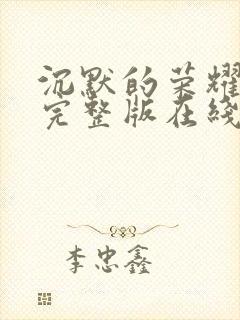 沉默的荣耀
完整版在线
李忠鑫